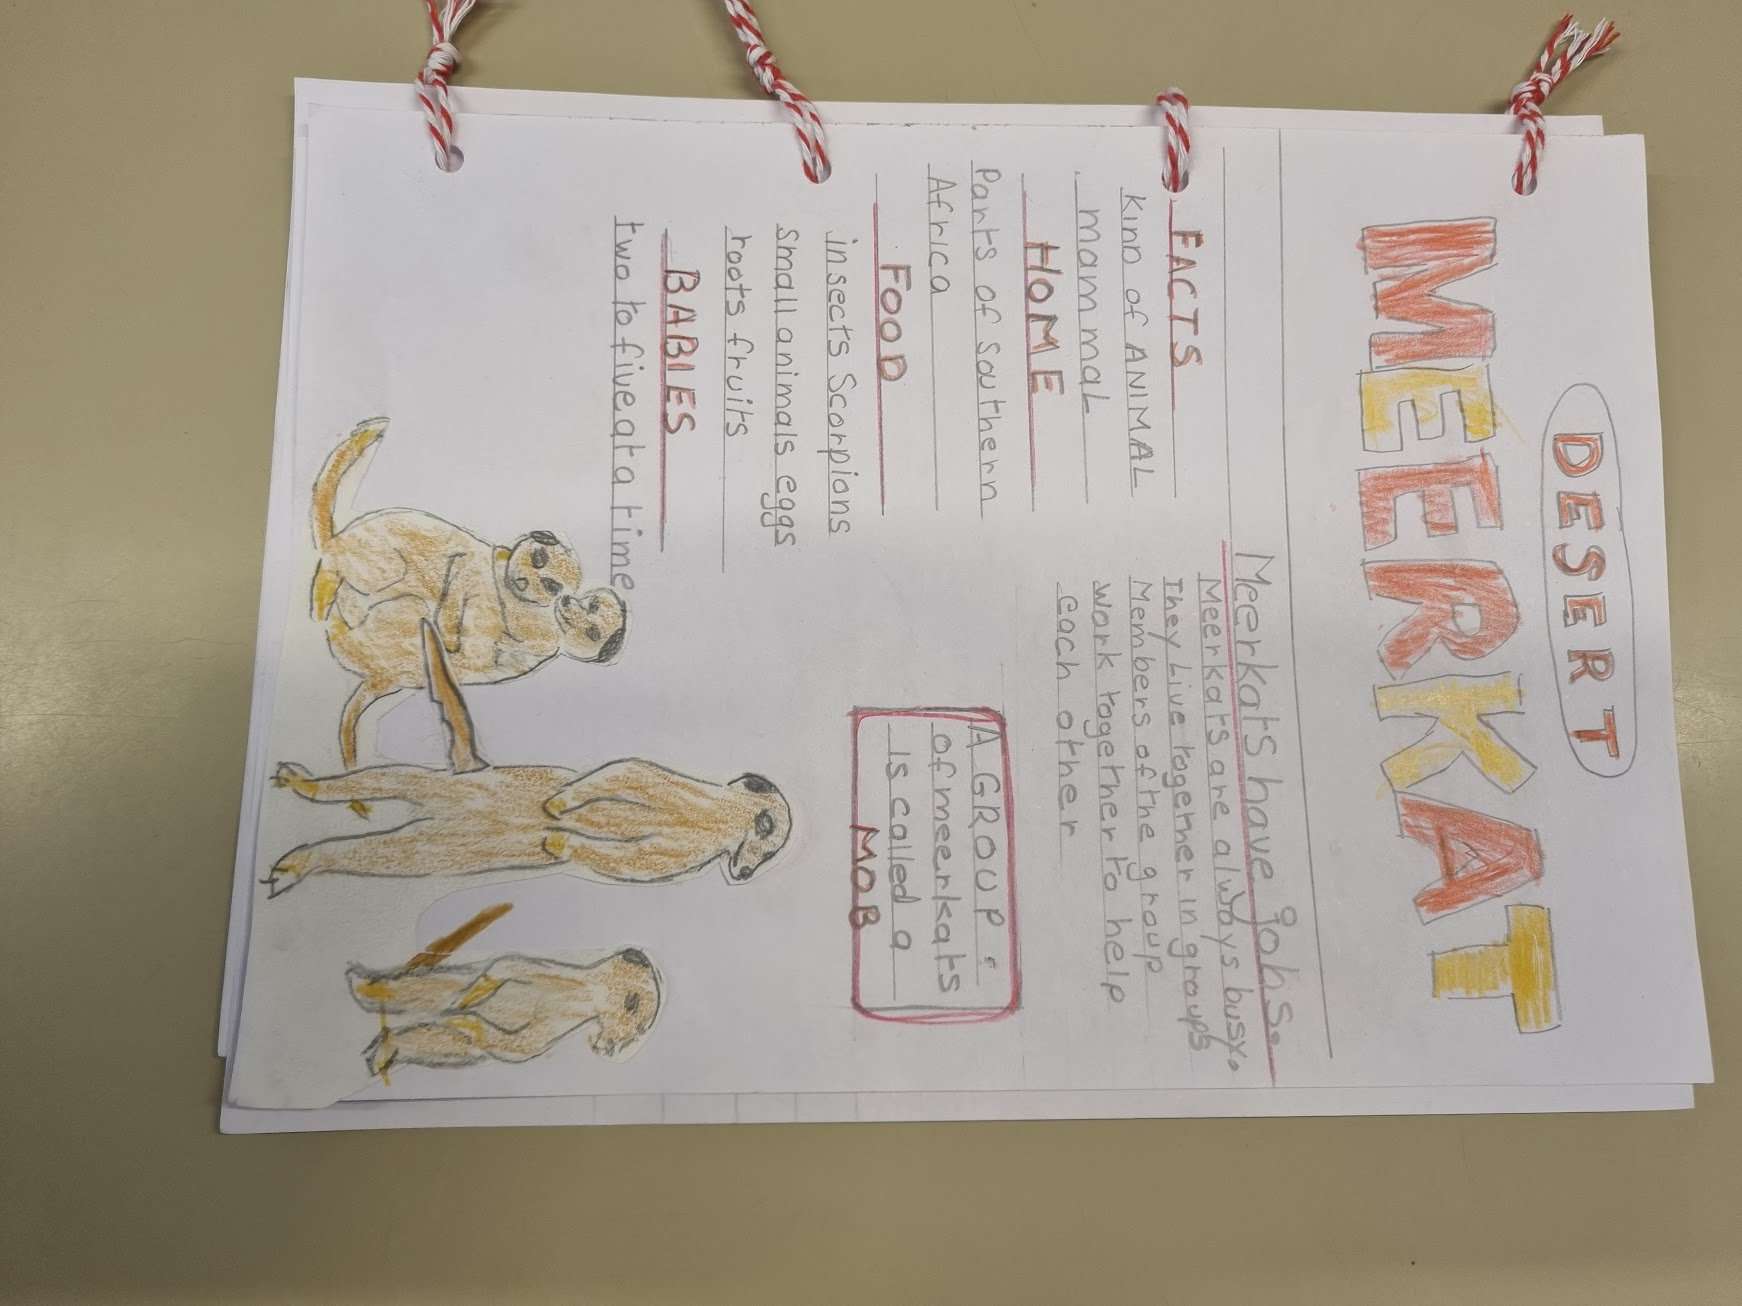 DESERT
MEERKAT
Meerkats have johs.
Meerkats are always busy.
They Live together in groups
Members of the group
work together to help
each other
FACTS
kinD of ANIMAL
mammaL
HOME
Parts of southern
Africa
FOOD
insects Scorpions
small animals eggs
roots fruits
BABIES
two to five at a time
A GROUP:
of meerkats
is called a
MOB